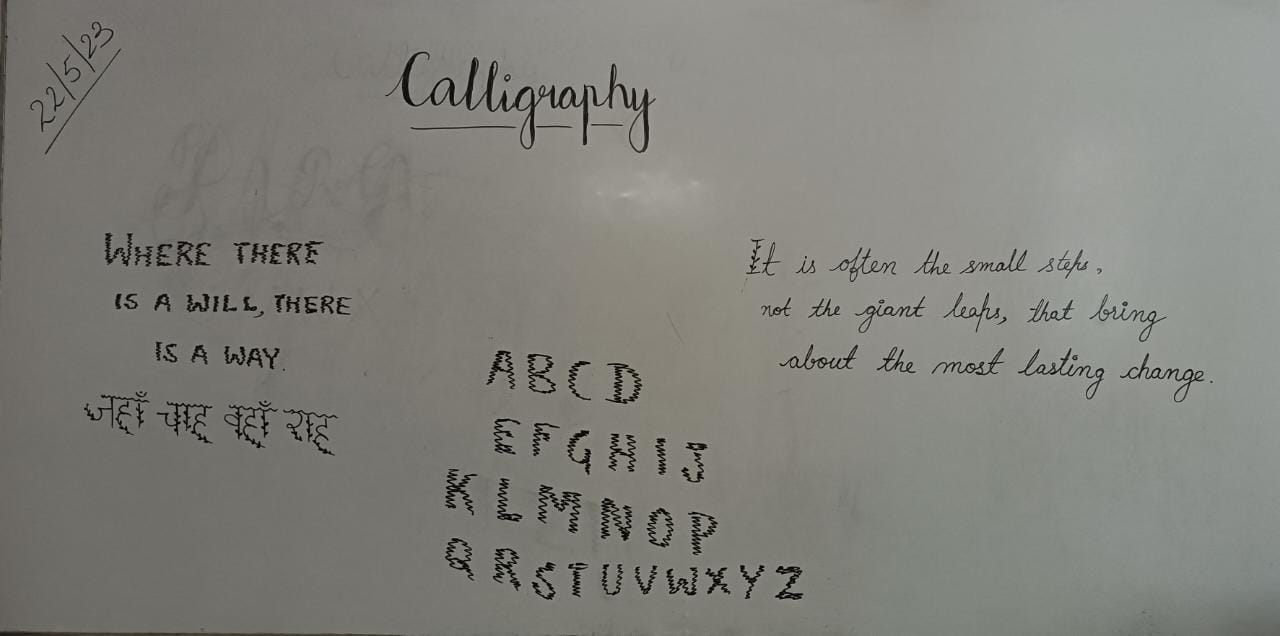 22/5/23
Calligraphy
WHERE THERE
IS A WILL, THERE
IS A WAY.
जहाँ चाह वहाँ राह
A B C D
E F G H I J
K L M N O P
Q R S T U V W X Y Z
It is often the small steps,
not the giant leaps, that bring
about the most lasting change.